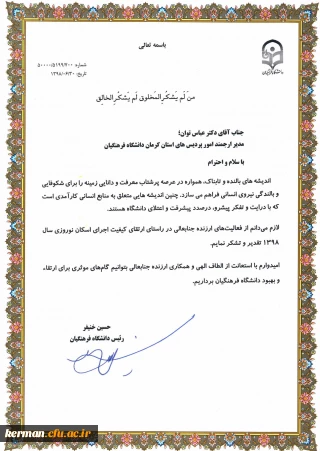 باسمه تعالی
دانشگاه فرهنگیان
شماره: ۵۰۰۰۰/۵۱۹۹/۷۰۰
تاریخ: ۱۳۹۸/۰۶/۳۰
مَن لَم یَشکُرِ المَخلوق لَم یَشکُرِ الخالِق
جناب آقای دکتر عباس توان؛
مدیر ارجمند امور پردیس های استان کرمان دانشگاه فرهنگیان
با سلام و احترام
اندیشه های بالنده و تابناک، همواره در عرصه پرشتاب معرفت و دانایی زمینه را برای شکوفایی
و بالندگی نیروی انسانی فراهم می سازد. چنین اندیشه هایی متعلق به منابع انسانی کارآمدی است
که با درایت و تفکر پیشرو، درصدد پیشرفت و اعتلای دانشگاه هستند.
لازم می‌دانم از فعالیت‌های ارزنده جنابعالی در راستای ارتقای کیفیت اجرای اسکان نوروزی سال
۱۳۹۸ تقدیر و تشکر نمایم.
امیدوارم با استعانت از الطاف الهی و همکاری ارزنده جنابعالی بتوانیم گام‌های موثری برای ارتقاء
و بهبود دانشگاه فرهنگیان برداریم.
حسین خنیفر
رئیس دانشگاه فرهنگیان
kerman.cfu.ac.ir